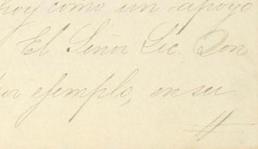 hoy como un apoyo
El Señor Lic. Don
por ejemplo, en su